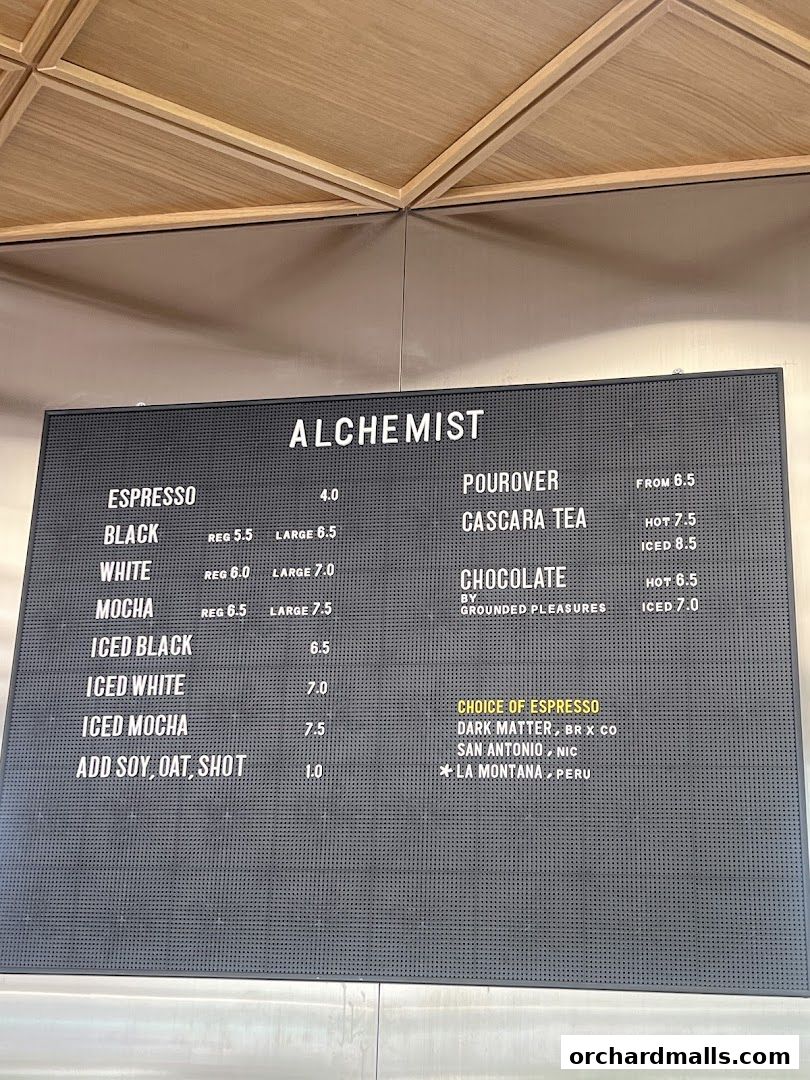 ALCHEMIST
ESPRESSO 4.0
BLACK REG 5.5 LARGE 6.5
WHITE REG 6.0 LARGE 7.0
MOCHA REG 6.5 LARGE 7.5
ICED BLACK 6.5
ICED WHITE 7.0
ICED MOCHA 7.5
ADD SOY, OAT, SHOT 1.0
POUROVER FROM 6.5
CASCARA TEA HOT 7.5
ICED 8.5
CHOCOLATE HOT 6.5
BY
GROUNDED PLEASURES ICED 7.0
CHOICE OF ESPRESSO
DARK MATTER, BR X CO
SAN ANTONIO, NIC
*LA MONTANA, PERU
orchardmalls.com